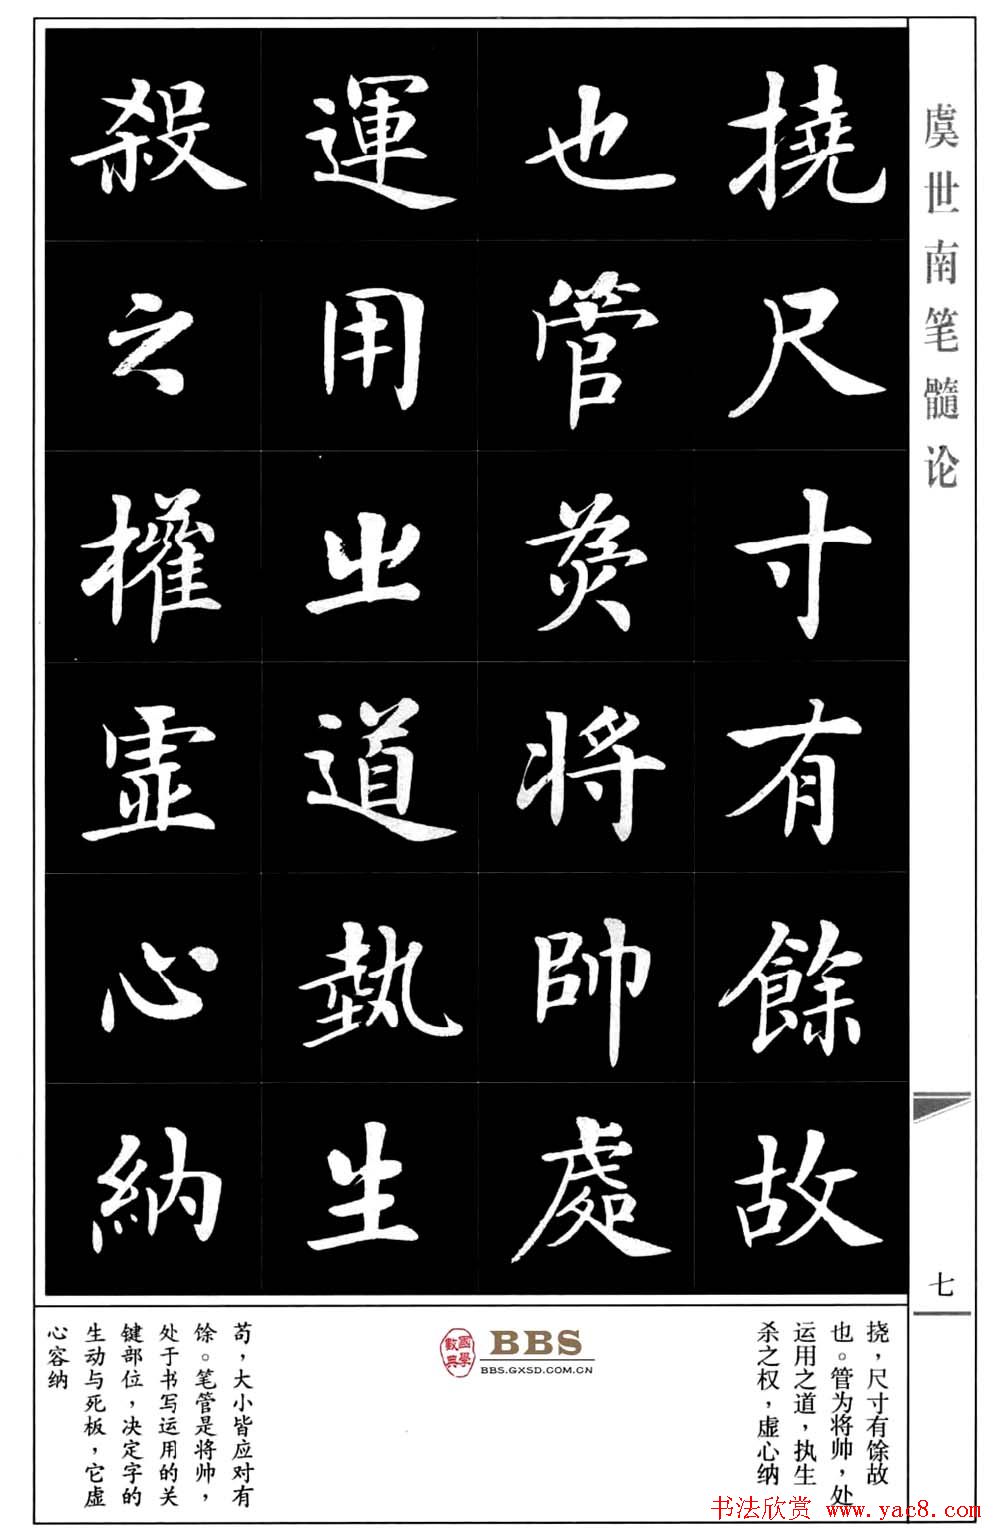 虞世南笔髓论
七
撓尺寸有餘故
也管為將帥處
運用之道執生
殺之權虛心納
挠，尺寸有馀故
也。管为将帅，处
运用之道，执生
杀之权，虚心纳
國學數典
BBS
BBS.GXSD.COM.CN
苟，大小皆应对有
馀。笔管是将帅，
处于书写运用的关
键部位，决定字的
生动与死板，它虚
心容纳
书法欣赏 www.yac8.com